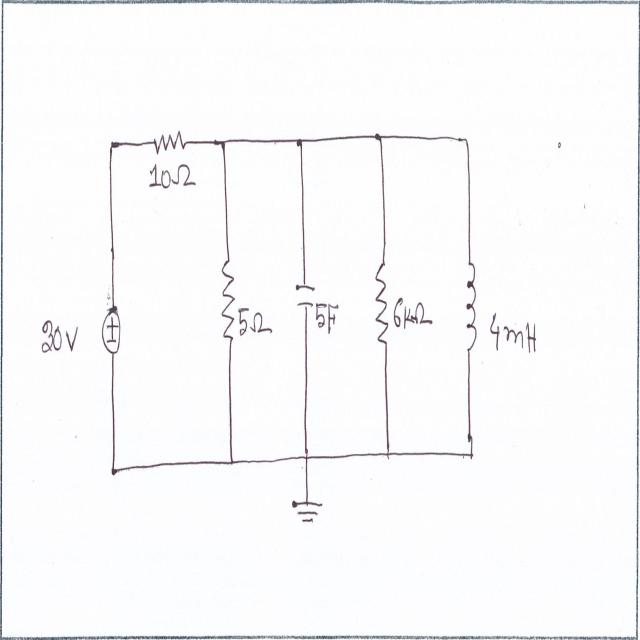 10Ω
30V
5Ω
5F
6kΩ
4mH